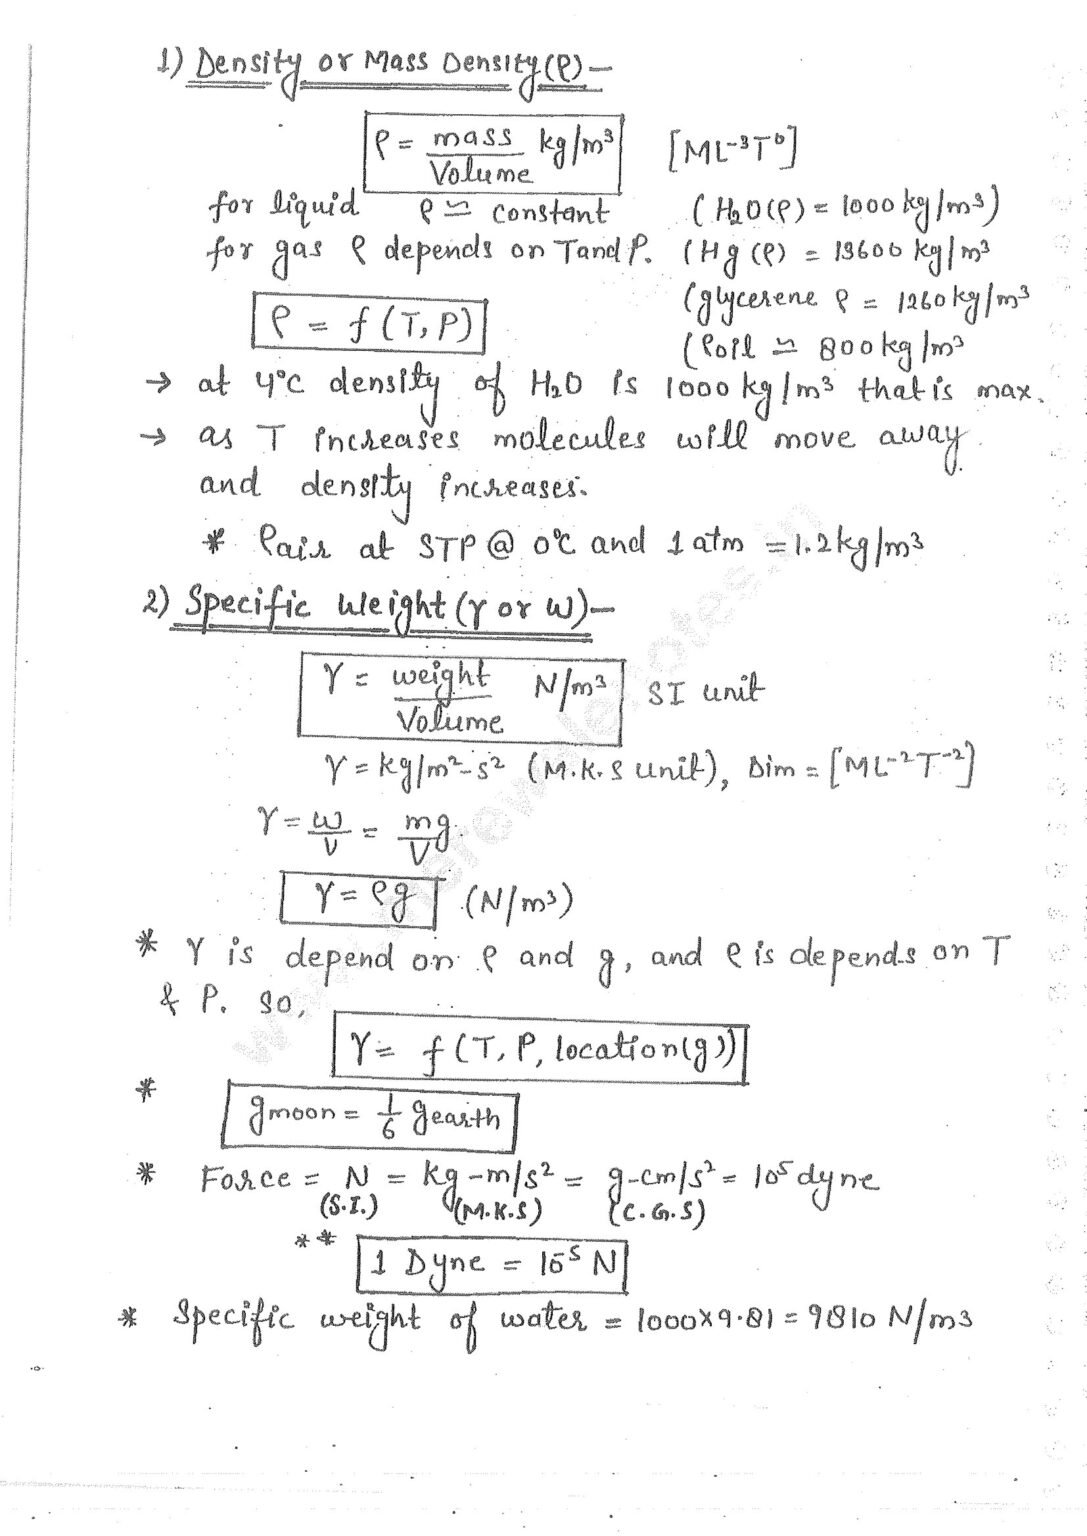 1) Density or Mass Density (ρ) –
ρ = mass/Volume kg/m³ [ML⁻³T⁰]
for liquid ρ ≃ constant (H₂O(ρ) = 1000 kg/m³)
for gas ρ depends on T and P. (Hg (ρ) = 13600 kg/m³
(glycerene ρ = 1260 kg/m³
ρ = f (T, P)
(ρoil ≃ 800 kg/m³
→ at 4°C density of H₂O is 1000 kg/m³ that is max.
→ as T increases molecules will move away.
and density increases.
* ρair at STP @ 0°C and 1 atm = 1.2 kg/m³
2) Specific Weight (γ or w) –
γ = weight/Volume N/m³ SI unit
γ = kg/m²-s² (M.K.S unit), Dim = [ML⁻²T⁻²]
γ = w/V = mg/V
γ = ρg (N/m³)
* γ is depend on ρ and g, and ρ is depends on T
& P. so,
γ = f (T, P, location(g))
* gmoon = 1/6 gearth
* Force = N = kg-m/s² = g-cm/s² = 10⁵ dyne
(S.I.) (M.K.S) (C.G.S)
** 1 Dyne = 10⁻⁵ N
* Specific weight of water = 1000×9.81 = 9810 N/m³
www.herewalenotes.in